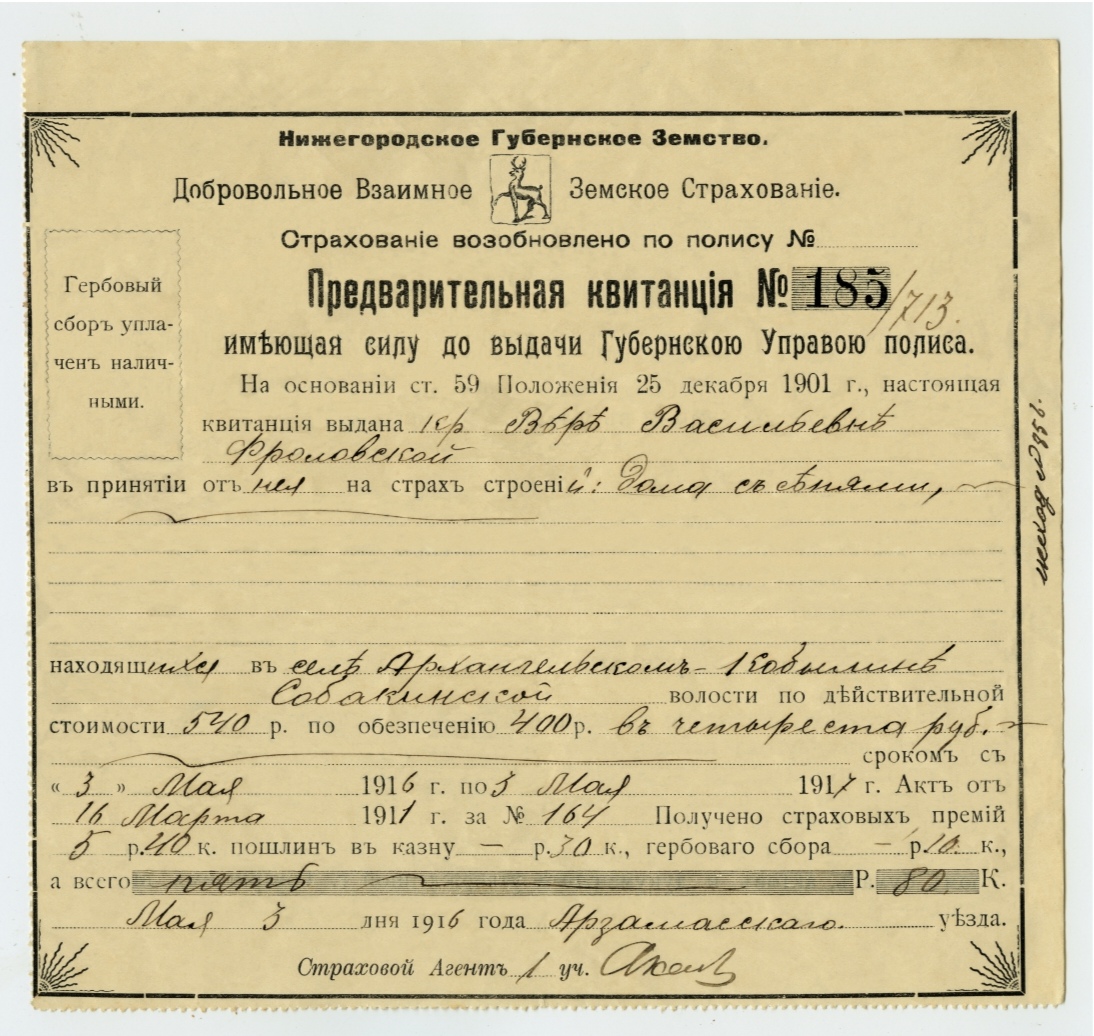 Нижегородское Губернское Земство.
Добровольное Взаимное Земское Страхованіе.
Страхованіе возобновлено по полису №
Гербовый
сборъ упла-
ченъ налич-
ными.
Предварительная квитанція № 185/713.
имѣющая силу до выдачи Губернскою Управою полиса.
На основаніи ст. 59 Положенія 25 декабря 1901 г., настоящая
квитанція выдана кр Вѣрѣ Васильевнѣ
Фроловской
въ принятіи отъ нея на страхъ строеній: Дома съ сѣнями,
находящихся въ селѣ Архангельскомъ-Кобылинѣ
Собакинской волости по дѣйствительной
стоимости 540 р. по обезпеченію 400 р. въ четыреста руб.
срокомъ съ
« 3 » Мая 1916 г. по 3 Мая 1917 г. Актъ отъ
16 Марта 1911 г. за № 164 Получено страховыхъ премій
5 р. 40 к. пошлинъ въ казну — р. 30 к., гербоваго сбора — р. 10 к.,
а всего пять Р. 80 К.
Мая 3 дня 1916 года Арзамасскаго. уѣзда.
Страховой Агентъ 1 уч.